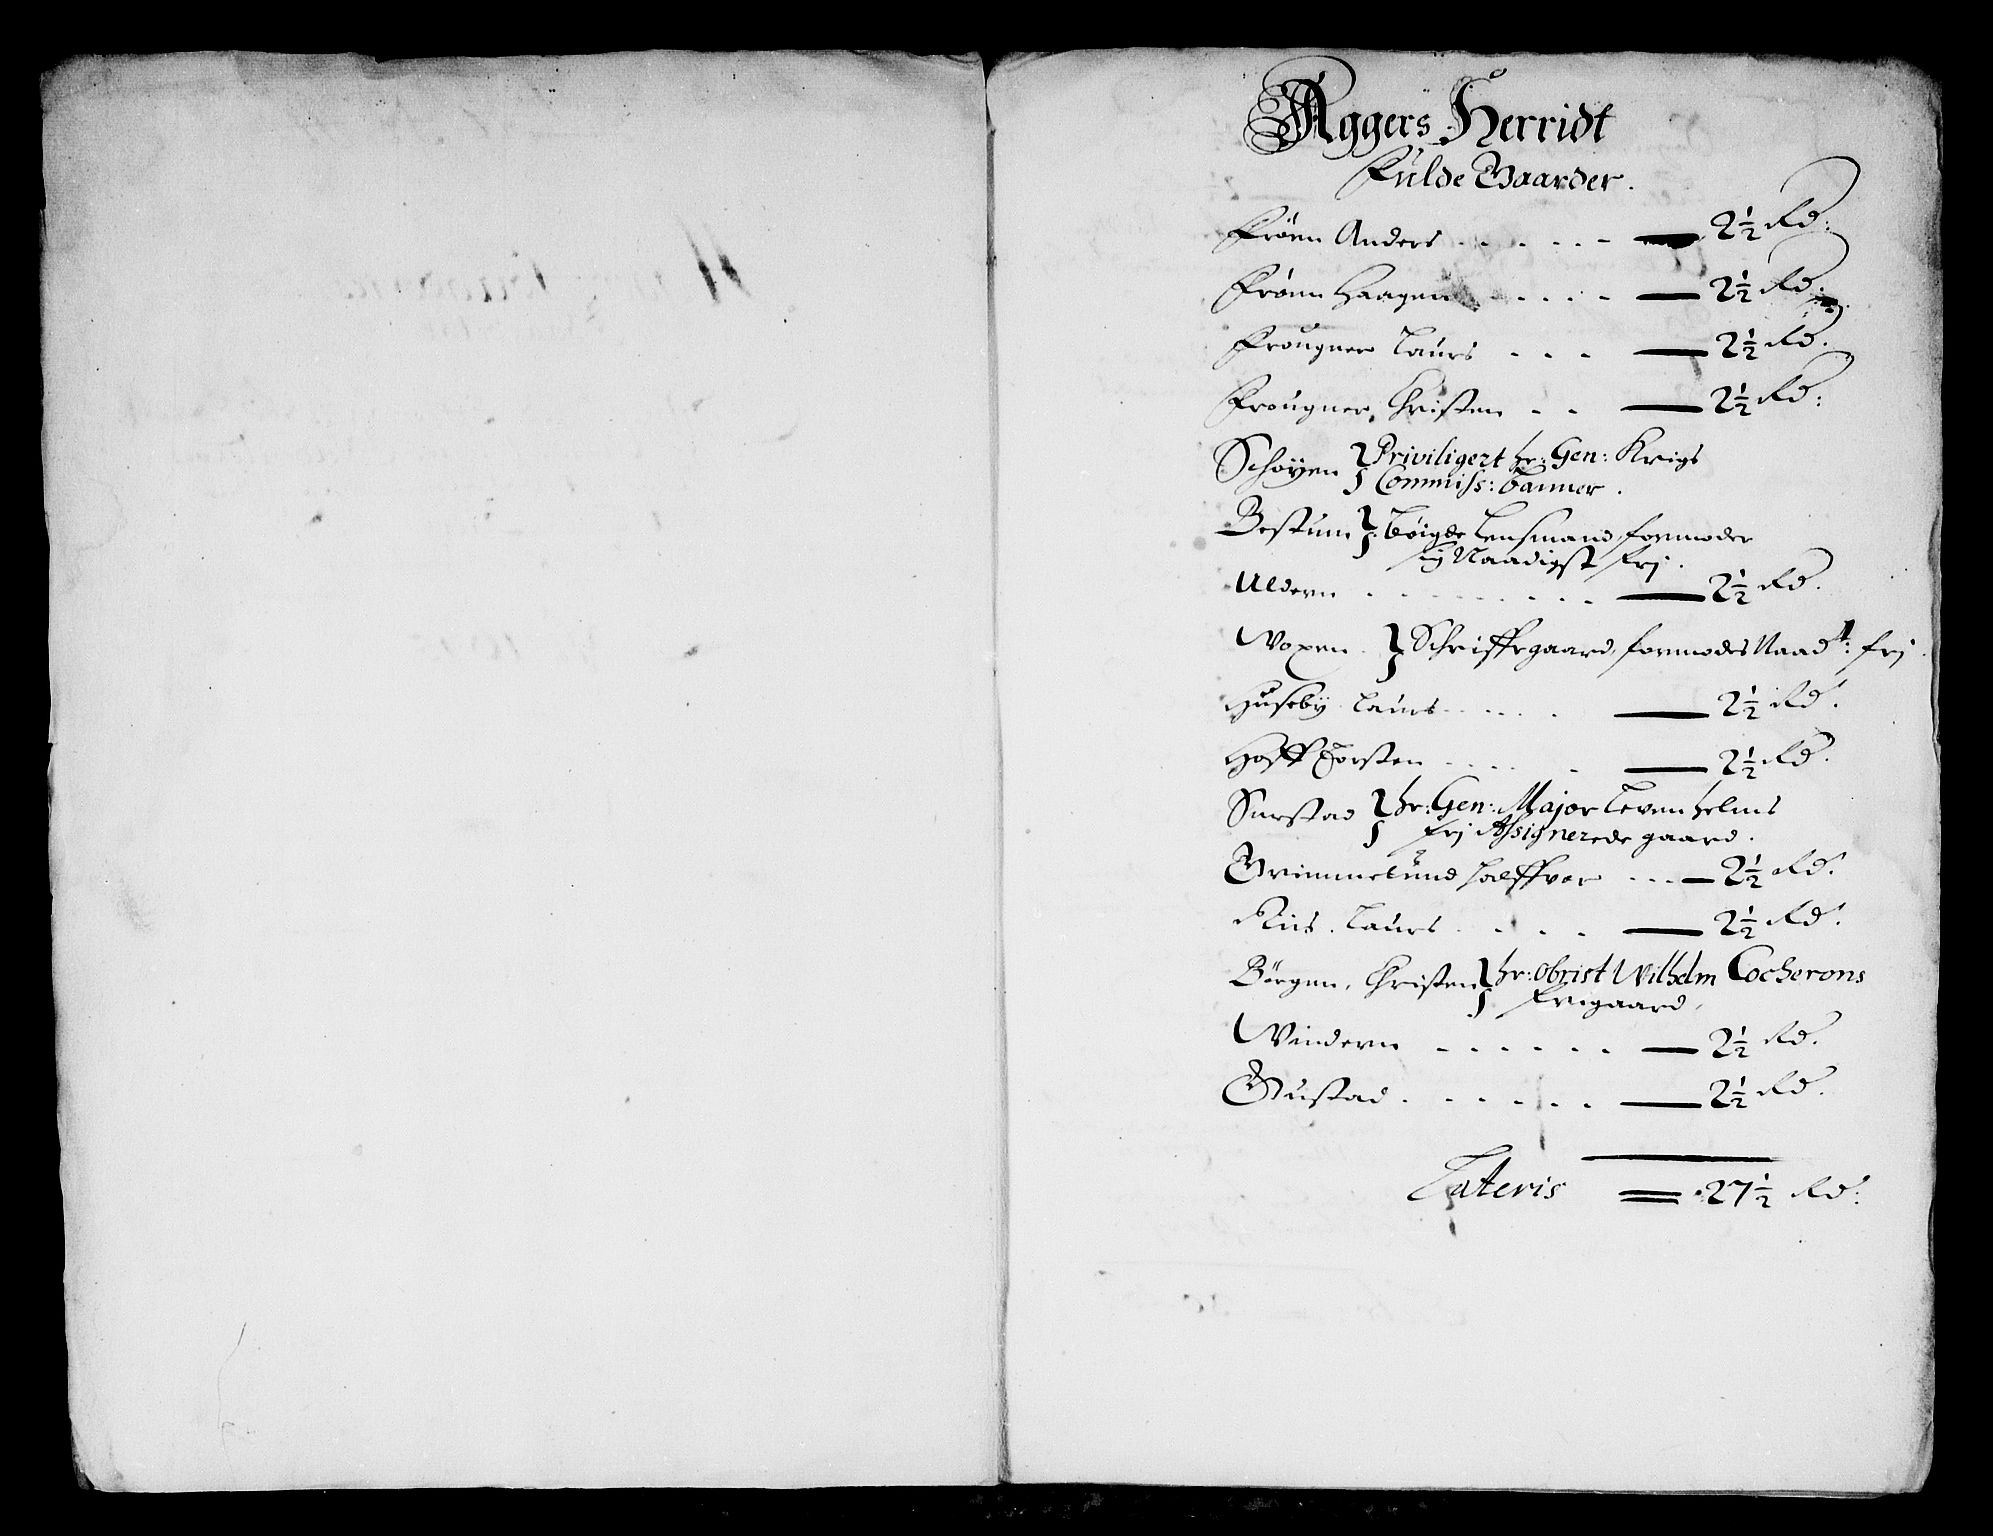 Aggers Herridt
Fulde Gaarder.
Frøen Anders - - - - - - — 2½ Rd:
Frøen Haagen - - - - - — 2½ Rd:
Frougner Laurs - - - — 2½ Rd.
Frougner, Christen - - — 2½ Rd:
Schøyen } Priviligert hr: Gen: Krigs
Commiss: banner.
Bestum } bøigde Lensmand formoder
sig Naadigst frj.
Uldern - - - - - - - — 2½ Rd.
Woxen. } Schriffregaard, formodes Naadt: frj.
Huseby Laurs - - - - — 2½ Rd.
Hoff Torsten - - - - - — 2½ Rd.
Smestad } hr: Gen: Major Levenhelms
frj Assignerede gaard.
Grimmelund Halffvor - - - — 2½ Rd.
Riis. Laurs - - - - — 2½ Rd.
Børgen, Christen } hr: Obrist Wilhelm Cocherons
frigaard,
Windern - - - - - - — 2½ Rd.
Gustad - - - - - - — 2½ Rd.
Lateris = 27½ Rd: